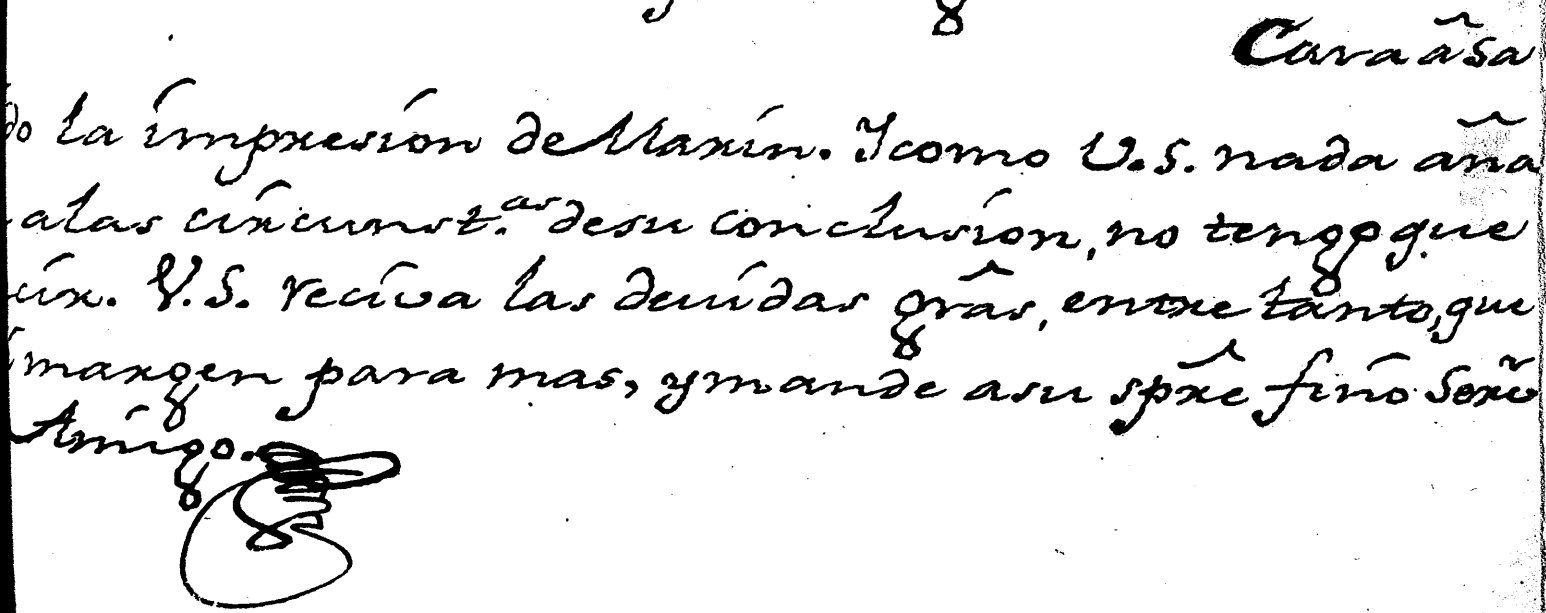 Cara ã sa
do la impresion de Marin. Y como V.S. nada aña
a las circunst.as de su conclusion, no tengo que
cir. V.S. reciva las devidas grãs, entre tanto, que
margen para mas, y mande a su spre fino
Amigo.